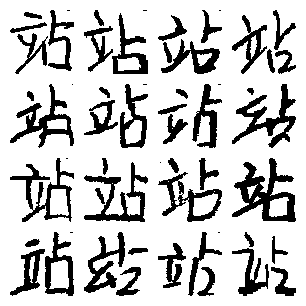 站站站站
站站站站
站站站站
站站站站